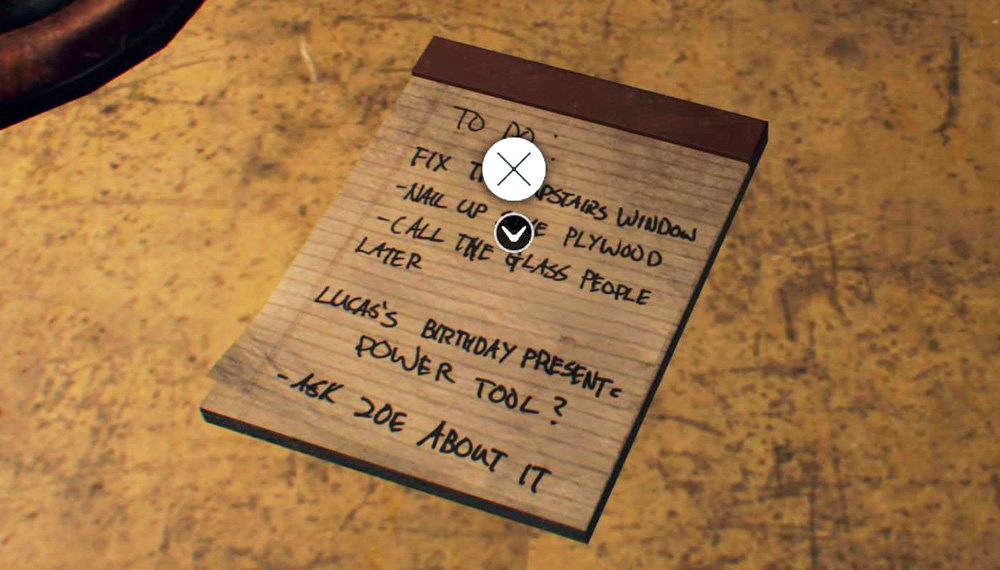 TO DO :
FIX UPSTAIRS WINDOW
-NAIL UP PLYWOOD
-CALL THE GLASS PEOPLE
LATER
LUCAS'S BIRTHDAY PRESENT:
POWER TOOL ?
-ASK ZOE ABOUT IT